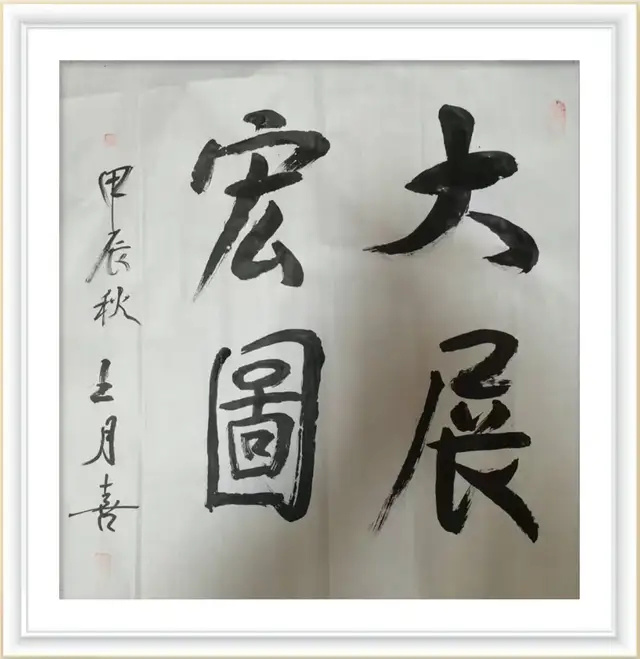 大展
宏圖
甲辰秋 王月喜